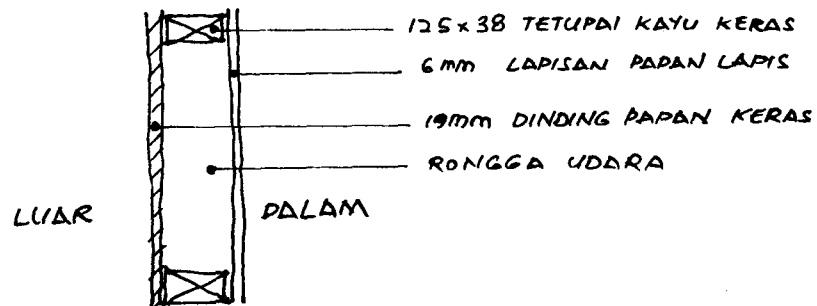 125x38 TETUPAI KAYU KERAS
6mm LAPISAN PAPAN LAPIS
19mm DINDING PAPAN KERAS
RONGGA UDARA
LUAR
DALAM